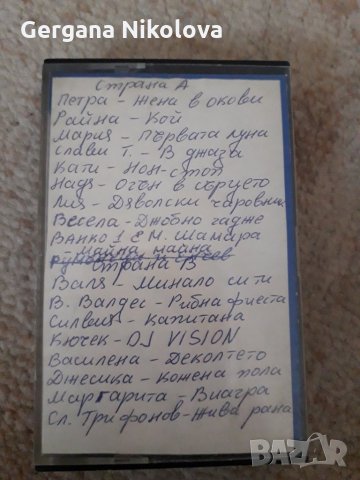 Gergana Nikolova
Страна А
Петра - Жена в окови
Райна - Кой
Мария - Първата луна
Слави Т. - В джаза
Кати - Нон-стоп
Надя - Огън в сърцето
Лия - Дяволски чаровник
Весела - Джобно гадже
Ванко 1 & М. Шамара
майна майна
Страна В
Валя - Минало сити
В. Валдес - Рибна фиеста
Силвия - Капитана
Кючек - DJ VISION
Василена - Деколтето
Джесика - Кожена пола
Маргарита - Виагра
Сл. Трифонов - Жива рана
BAZAR